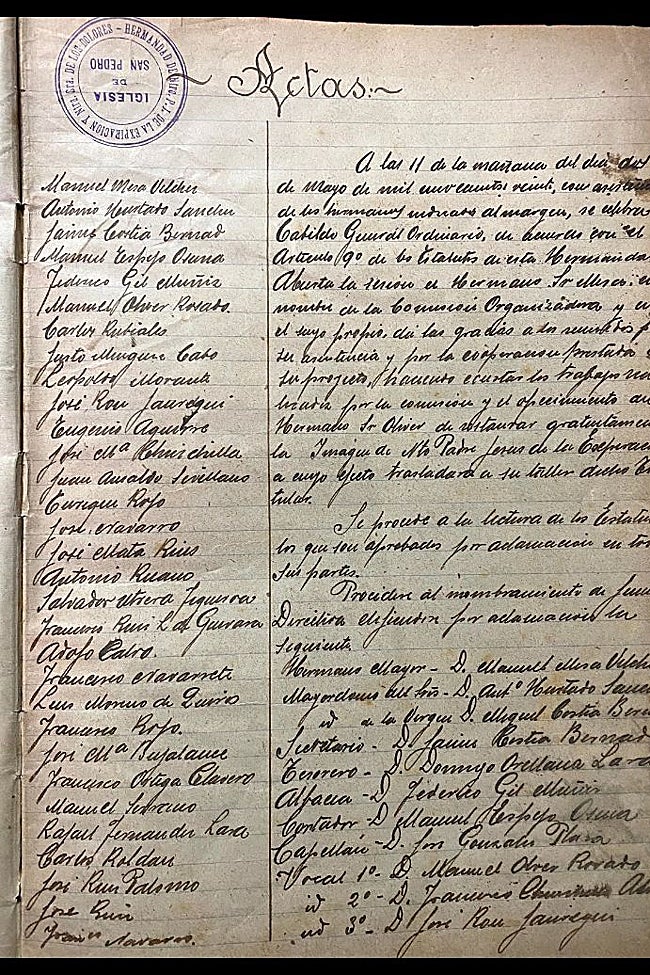 HERMANDAD DE Ntro. P. J. DE LA EXPIRACION Y Ntra. Sra. DE LOS DOLORES
IGLESIA
DE
SAN PEDRO
Actas
Manuel Mesa Vilches
Antonio Hurtado Sanchez
Jaime Costia Bernad
Manuel Espejo Osuna
Federico Gil Muñiz
Manuel Oliver Rosado.
Carlos Rubiales
Justo Minguez Cabo
Leopoldo Morante
José Rou Jauregui
Eugenio Aguirre
José Mª Chinchilla
Juan Ansaldo Sevillano
Enrique Rojo
José Navarro
José Mata Rius
Antonio Ruano
Salvador Utrera Figueroa
Francisco Ruiz L. de Guevara
Adolfo Calvo.
Francisco Navarrete
Luis Moreno de
Francisco Rojo.
José Mª Bujalance
Francisco Ortega Clavero
Manuel Serrano
Rafael Fernandez Lara
Carlos Roldan
José Ruiz Palomo
José Ruiz
Navarro.
A las 11 de la mañana del dia dos
de Mayo de mil novecientos veinte, con
de los hermanos indicados al margen, se celebra
Cabildo General Ordinario, de acuerdo con el
Articulo 9º de los Estatutos de esta
Abierta la sesion el Hermano Sr Mesa, en
nombre de la Comision Organizadora y en
el suyo propio, da las gracias a los reunidos
su asistencia y por la cooperacion prestada
su proyecto, haciendo constar los trabajos
por la comision y el ofrecimiento
Hermano Sr Oliver de restaurar
la Imagen de Ntº Padre Jesus de la
a cuyo efecto trasladara a su taller dicho
tular.
Se procede a la lectura de los
los que son aprobados por aclamacion en
sus partes.
Procedese al nombramiento de
Directiva eligiendose por aclamacion la
siguiente
Hermano Mayor - D. Manuel Mesa
Mayordomo del Sñr - D. Antº Hurtado
id de la Virgen D. Miguel Costia
Secretario - D. Jaime Costia Bernad
Tesorero - D. Domingo Orellana Lara
Albacea - D. Federico Gil Muñiz
Contador - D. Manuel Espejo Osuna
Capellan - D. José Gonzalez Plaza
Vocal 1º - D. Manuel Oliver Rosado
id 2º - D. Francisco
id 3º - D José Rou Jauregui